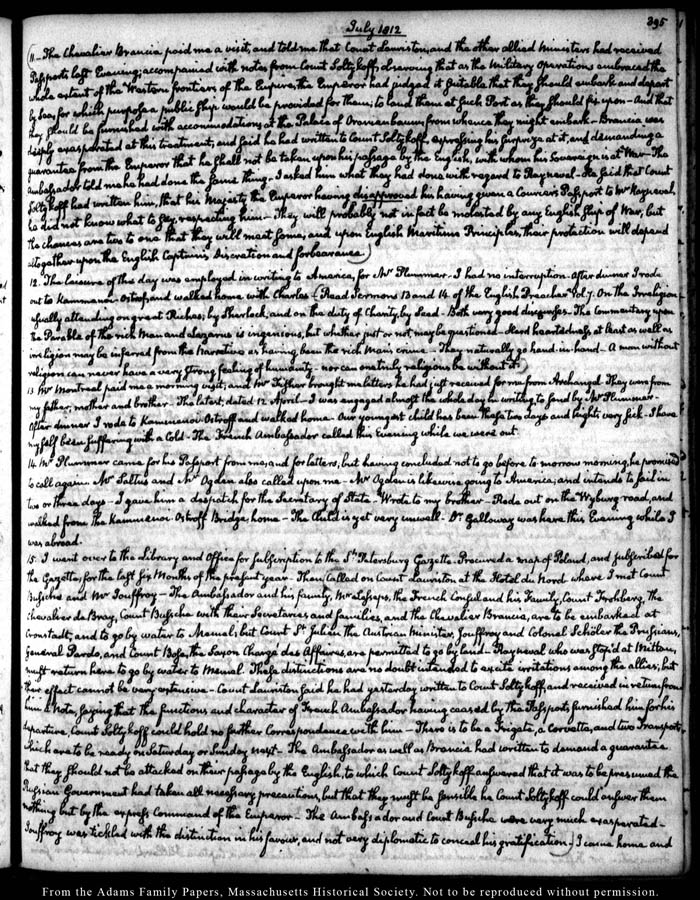 July 1812
395
11. The Chevalier Brancia paid me a visit, and told me that Count Lauriston, and the other allied Ministers had received
Passports last Evening; accompanied with notes from Count Soltykoff, observing that as the Military operations embraced the
whole extent of the Western frontiers of the Empire, the Emperor had judged it suitable that they should embark and depart
by Sea, for which purpose a public Ship would be provided for them; to land them at such Port as they should fix upon — And that
they should be furnished with accommodations at the Palace of Oranienbaum from whence they might embark — Brancia was
deeply exasperated at this treatment, and said he had written to Count Soltykoff, expressing his surprize at it, and demanding a
guarantee from the Emperor that he shall not be taken upon his passage by the English, with whom his Sovereign is at War — The
Ambassador told me he had done the same thing. I asked him what they had done with regard to Rayneval. He said that Count
Soltykoff had written him, that his Majesty the Emperor having disapproved his having given a Courier's Passport to Mr Rayneval,
he did not know what to say, respecting him — They will probably not in fact be molested by any English Ship of War, but
the chances are two to one that they will meet some, and upon English Maritime Principles, their protection will depend
altogether upon the English Captain's discretion and forbearance
12. The leisure of this day was employed in writing to America, for Mr Plummer. I had no interruption. After dinner I rode
out to Kammenoi-Ostrof, and walked home with Charles. Read Sermons 13 and 14. of the English Preacher Vol 7. On the Irreligion
usually attending on great Riches; by Sherlock, and on the duty of Charity, by Seed. Both very good discourses. The Commentary upon
the Parable of the rich Man and Lazarus is ingenious, but whether just or not, may be questioned. Hard heartedness at least as well as
irreligion may be inferred from the Narrative as having been the rich Man's crime. They naturally go hand in hand. A man without
religion can never have a very strong feeling of humanity nor can one truly religious be without it.
13. Mr Montreal paid me a morning visit; and Mr Fisher brought me letters he had just received for me from Archangel. They were from
my father, mother and brother. The latest, dated 12. April — I was engaged almost the whole day in writing to send by Mr Plummer.
After dinner I rode to Kammenoi-Ostroff and walked home. Our youngest child has been these two days and nights very sick. I have
myself been suffering with a cold. The French Ambassador called this evening while we were out.
14. Mr Plummer came for his Passport from me, and for letters, but having concluded not to go before to morrow morning, he promised
to call again. Mr Saltus and Mr Ogden also called upon me — Mr Ogden is likewise going to America; and intends to sail in
two or three days. I gave him a despatch for the Secretary of State. Wrote to my brother. Rode out on the Wyburg road, and
walked from the Kammenoi-Ostroff Bridge, home — The Child is yet very unwell. Dr Galloway was here this Evening while I
was abroad.
15. I went over to the Library and Office for subscription to the St Petersburg Gazette. Procured a map of Poland, and subscribed for
the Gazette, for the last six Months of the present year. Then called on Count Lauriston at the Hotel du Nord where I met Count
Bussche and Mr Jouffroy — The Ambassador and his family, Mr Lesseps, the French Consul and his Family, Count Frohberg, the
Chevalier de Bray, Count Bussche with their Secretaries and families, and the Chevalier Brancia, are to be embarked at
Cronstadt, and to go by water to Memel; but Count St Julien the Austrian Minister, Jouffroy and Colonel Schöler the Prussians,
General Pardo, and Count Bose, the Saxon Chargé des Affaires, are permitted to go by land. Rayneval who was stop'd at Mittau,
must return here to go by water to Memel. These distinctions are no doubt intended to excite irritations among the allies; but
their effect cannot be very extensive — Count Lauriston said he had yesterday written to Count Soltykoff, and received in return from
him a Note, saying that the functions and character of French Ambassador having ceased by the Passports furnished him for his
departure, Count Soltykoff could hold no further Correspondence with him — There is to be a Frigate, a Corvette, and two Transports
which are to be ready on Saturday or Sunday next. The Ambassador as well as Brancia had written to demand a guarantee
that they should not be attacked on their passage by the English, to which Count Soltykoff answered that it was to be presumed the
Russian Government had taken all necessary precautions, but that they must be sensible he Count Soltykoff could answer them
nothing but by the express Command of the Emperor — The Ambassador and Count Bussche were very much exasperated.
Jouffroy was tickled with the distinction in his favour, and not very diplomatic to conceal his gratification. I came home and
From the Adams Family Papers, Massachusetts Historical Society. Not to be reproduced without permission.